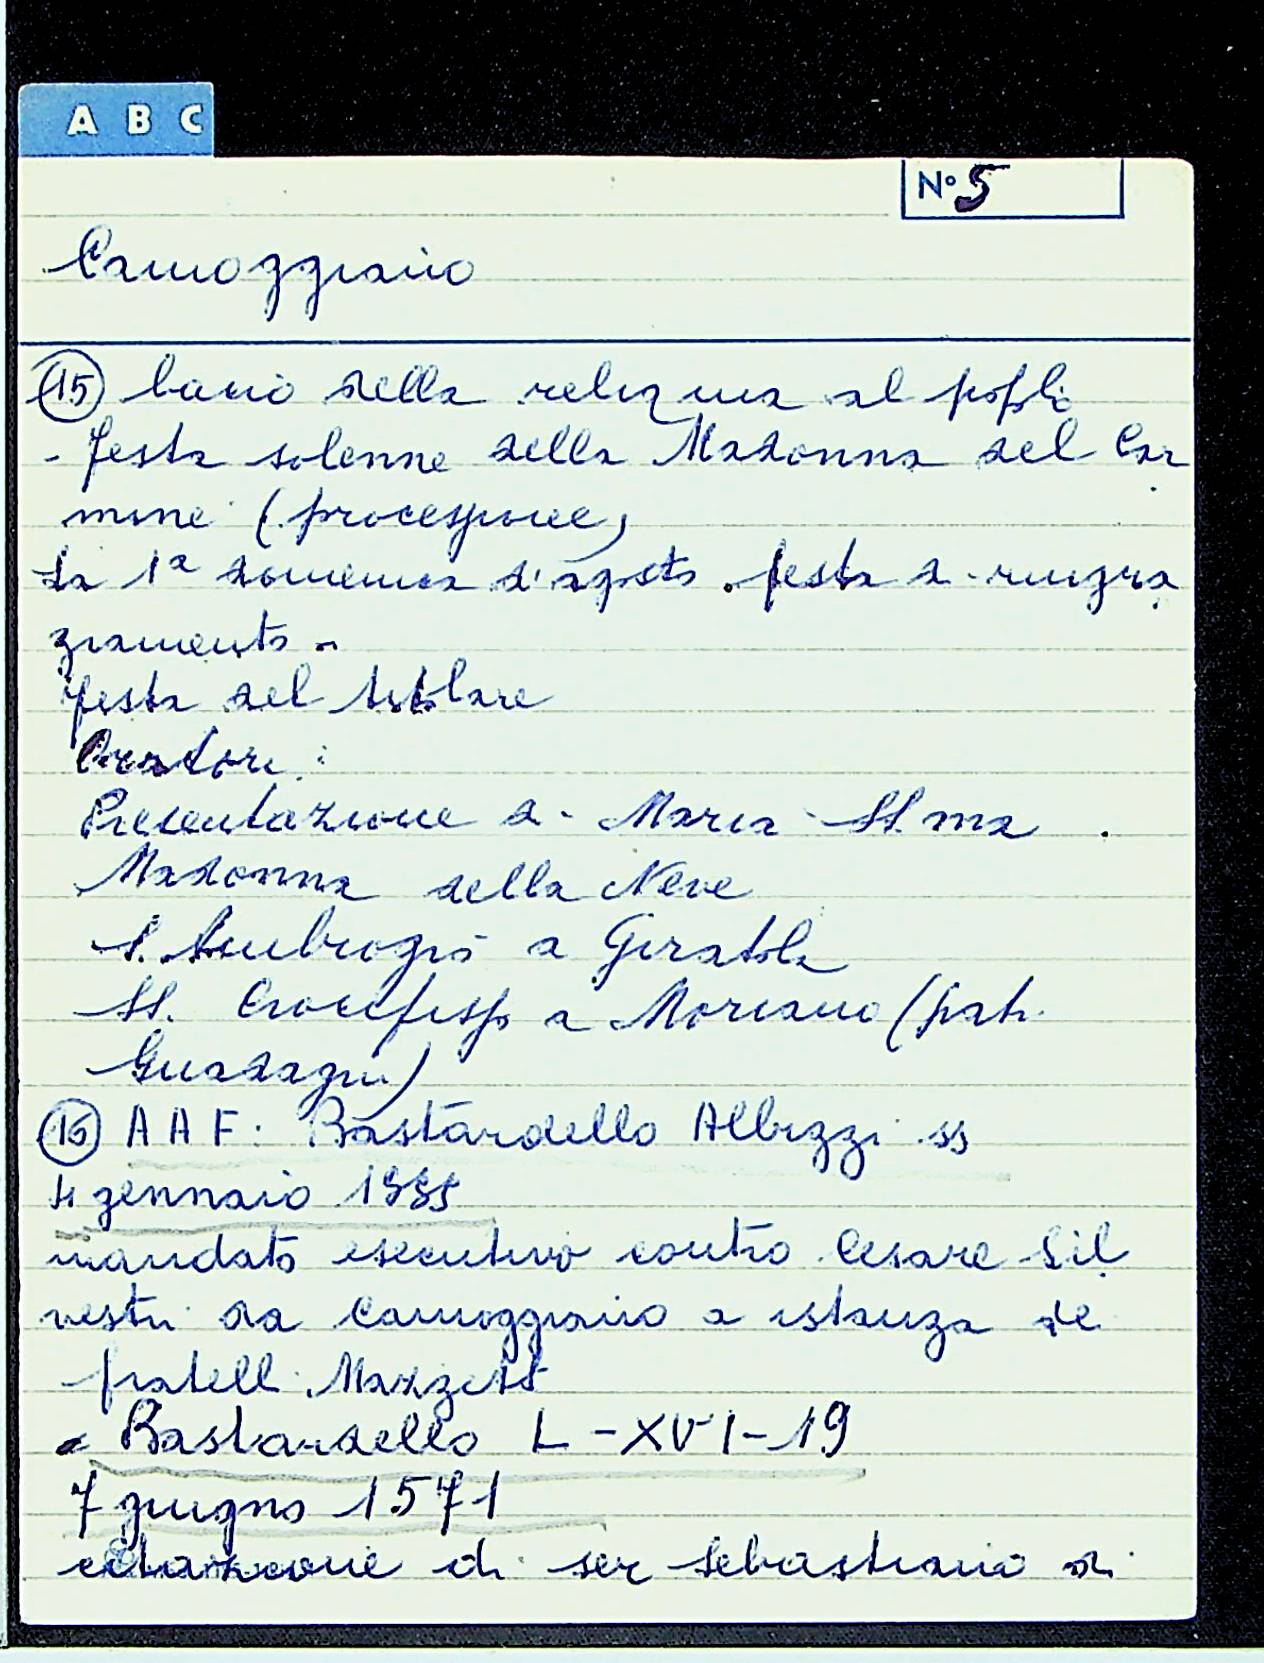 A B C
N° 5
Camoggiano
(15) bacio della reliquia al popolo
- festa solenne della Madonna del Car
mine (processione)
la 1ª domenica d'agosto. festa di ringra
ziamento -
festa del titolare
Oratori:
Presentazione di Maria SS.ma
Madonna della Neve
S. Ambrogio a Giratola
SS. Crocifisso a Moriano (patr.
Guadagni)
(16) AAF: Bastardello Albizzi ss
4 gennaio
mandato esecutivo contro Cesare Sil
vestri da Camoggiano a istanza de
fratelli
- Bastardello L-XVI-19
7 giugno 1571
citazione di ser Sebastiano di